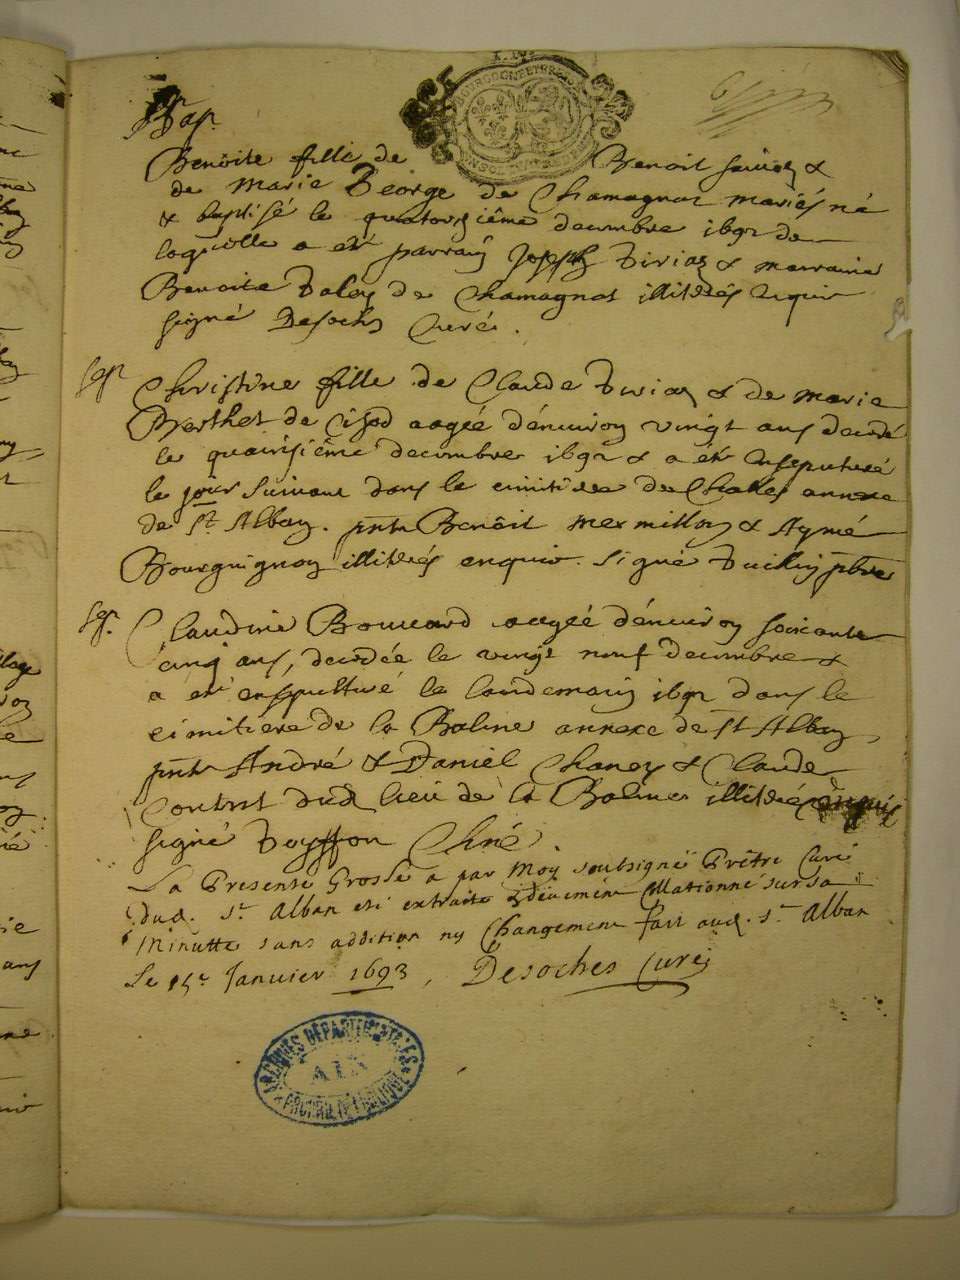 Bap.
Benoite fille de Benoit &
de Marie George de Chamagnat mariés né
& baptisé le quatorziême decembre 1692 de
laquelle a eté parrain Joseph Tirian & marraine
Benoite de Chamagnat illitérés enquis
signé Desoches Curé.
Sep.
Christine fille de Claude & de Marie
Berthet de Cisod aagée d'environ vingt ans decedé
le decembre 1692 & a eté ensepulturé
le jour suivant dans le cimitiere de annexe
de St Alban. pnts Benoit Mermillon & Aymé
Bourguignon illitérés enquis. Signé pbre
Sep.
Claudine Bouvard aagée d'environ soixante
cinq ans, decedée le vingt neuf decembre &
a eté ensepulturé le landemain 1692 dans le
cimitiere de la Balme annexe de St Alban,
pnts André & Daniel Chaney & Claude
dud. lieu de la Balme illitérés enquis
signé Teysson
La Presente Grosse a par moy soubsigné Prêtre Curé
dud. St. Alban eté extraite & deuement Collationné sur sa
Minutte sans addition ny Changement fait aud. St. Alban
Le 15e Janvier 1693, Desoches Curé
ARCHIVES DÉPARTEMENTALES
AIN
PROPRIÉTÉ PUBLIQUE